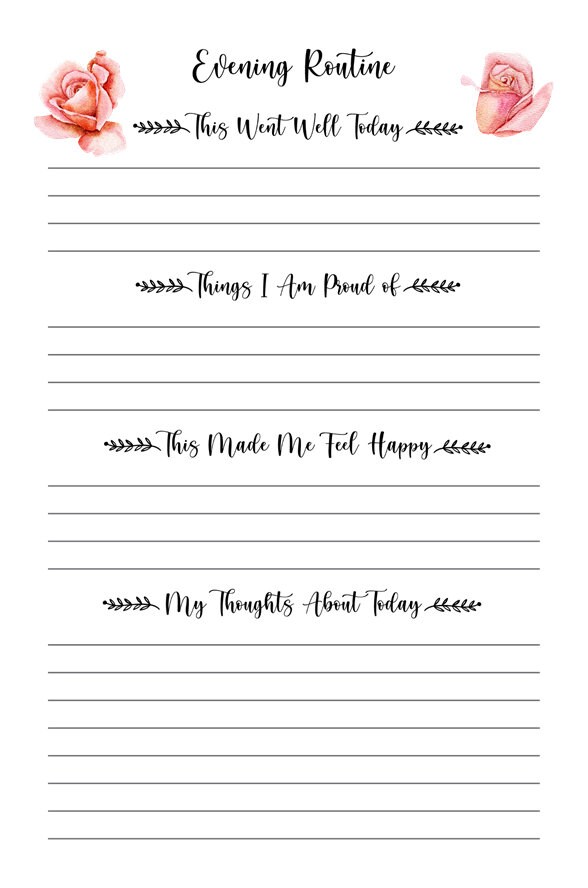 Evening Routine
This Went Well Today
Things I Am Proud of
This Made Me Feel Happy
My Thoughts About Today